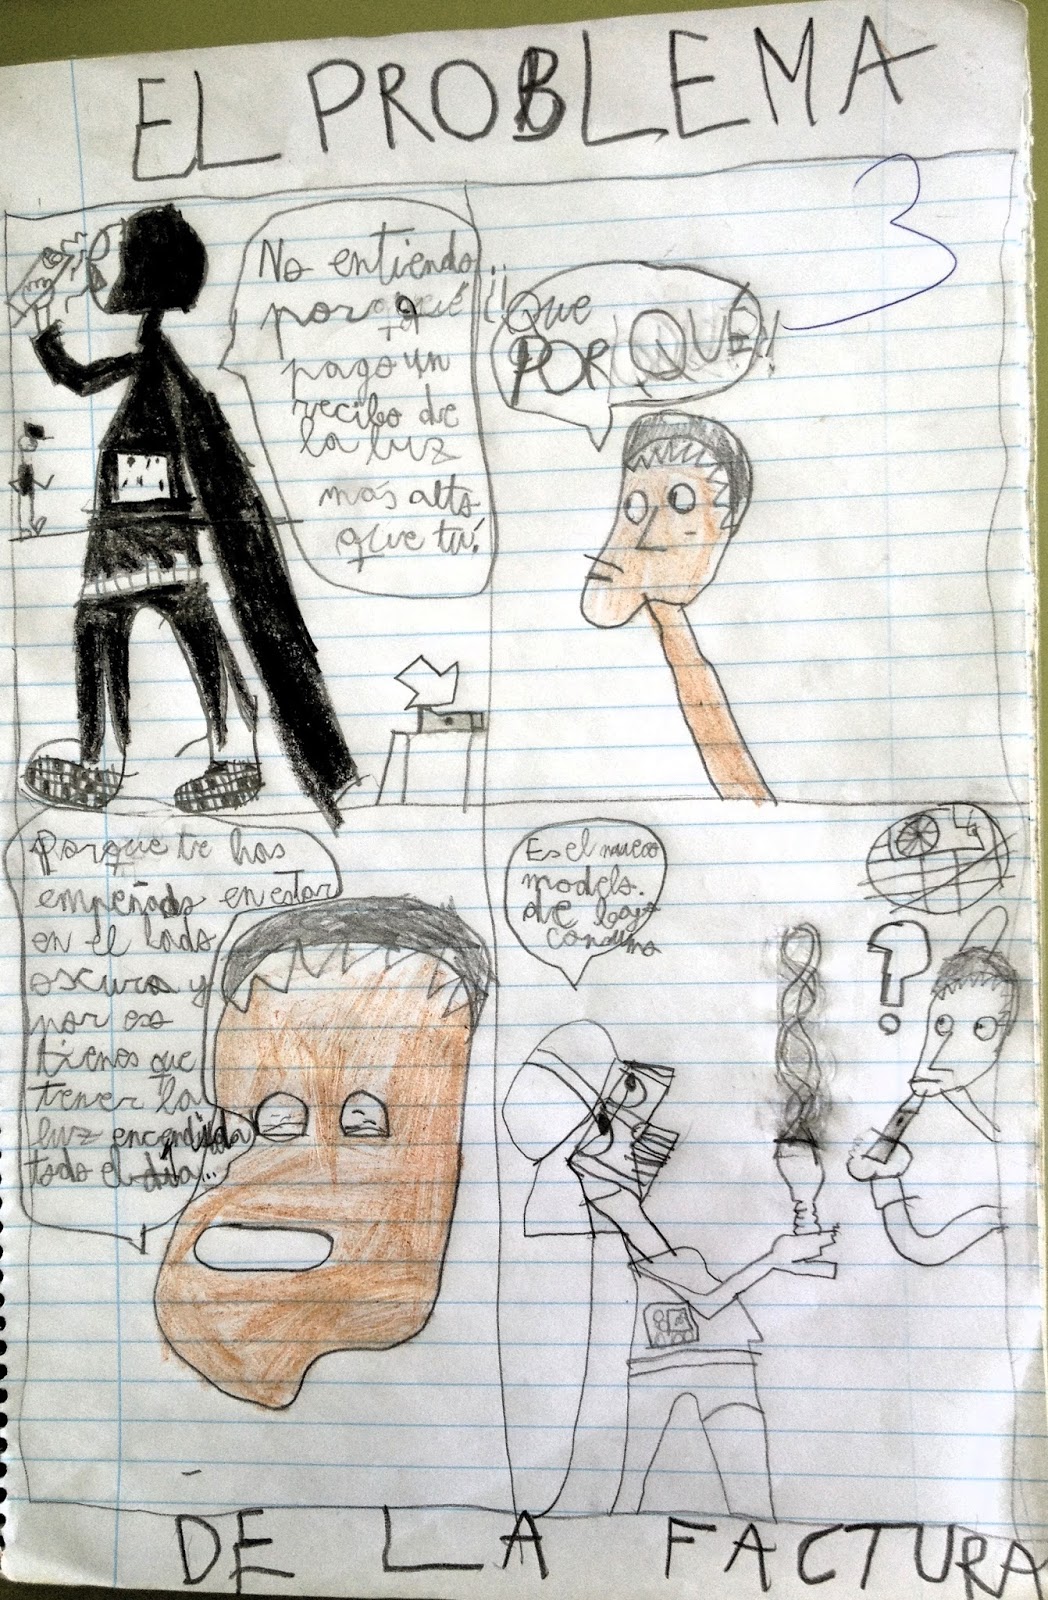 EL PROBLEMA
3
No entiendo
por qué
pago un
recibo de
la luz
más alto
que tú.
¡¡Que
POR QUE!!
Porque te has
empeñado en estar
en el lado
oscuro y
por eso
tienes que
tener la
luz encendida
todo el día...
Es el nuevo
modelo.
de bajo
consumo
?
DE LA FACTURA